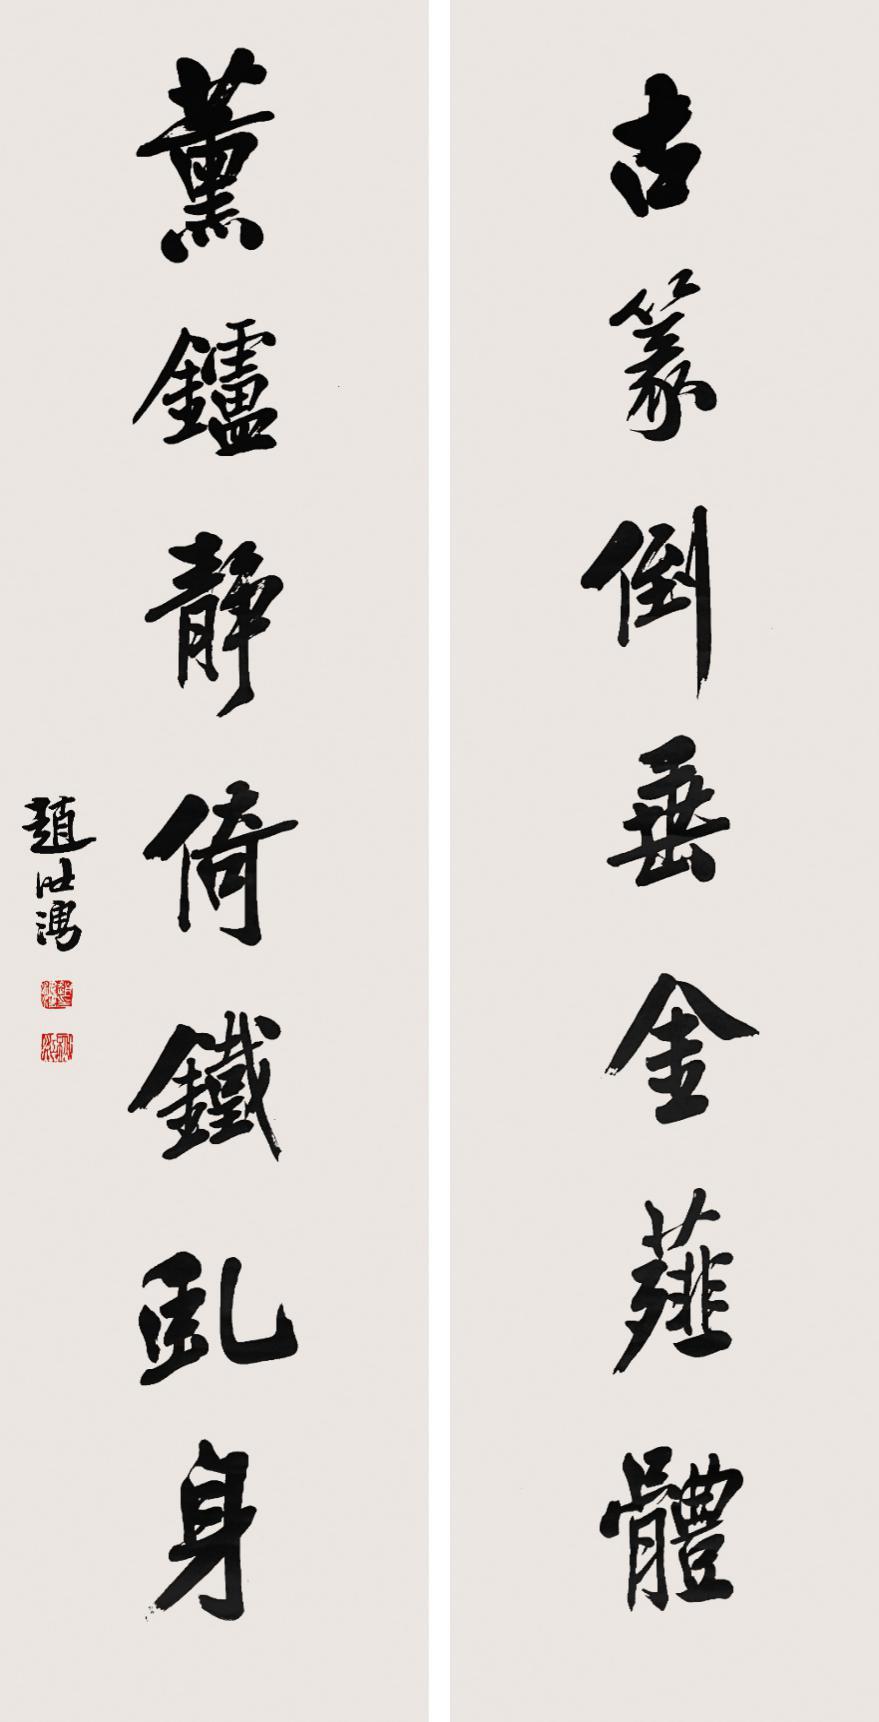 古篆倒垂金薤體
薰鑪靜倚鐵虬身
趙世湧